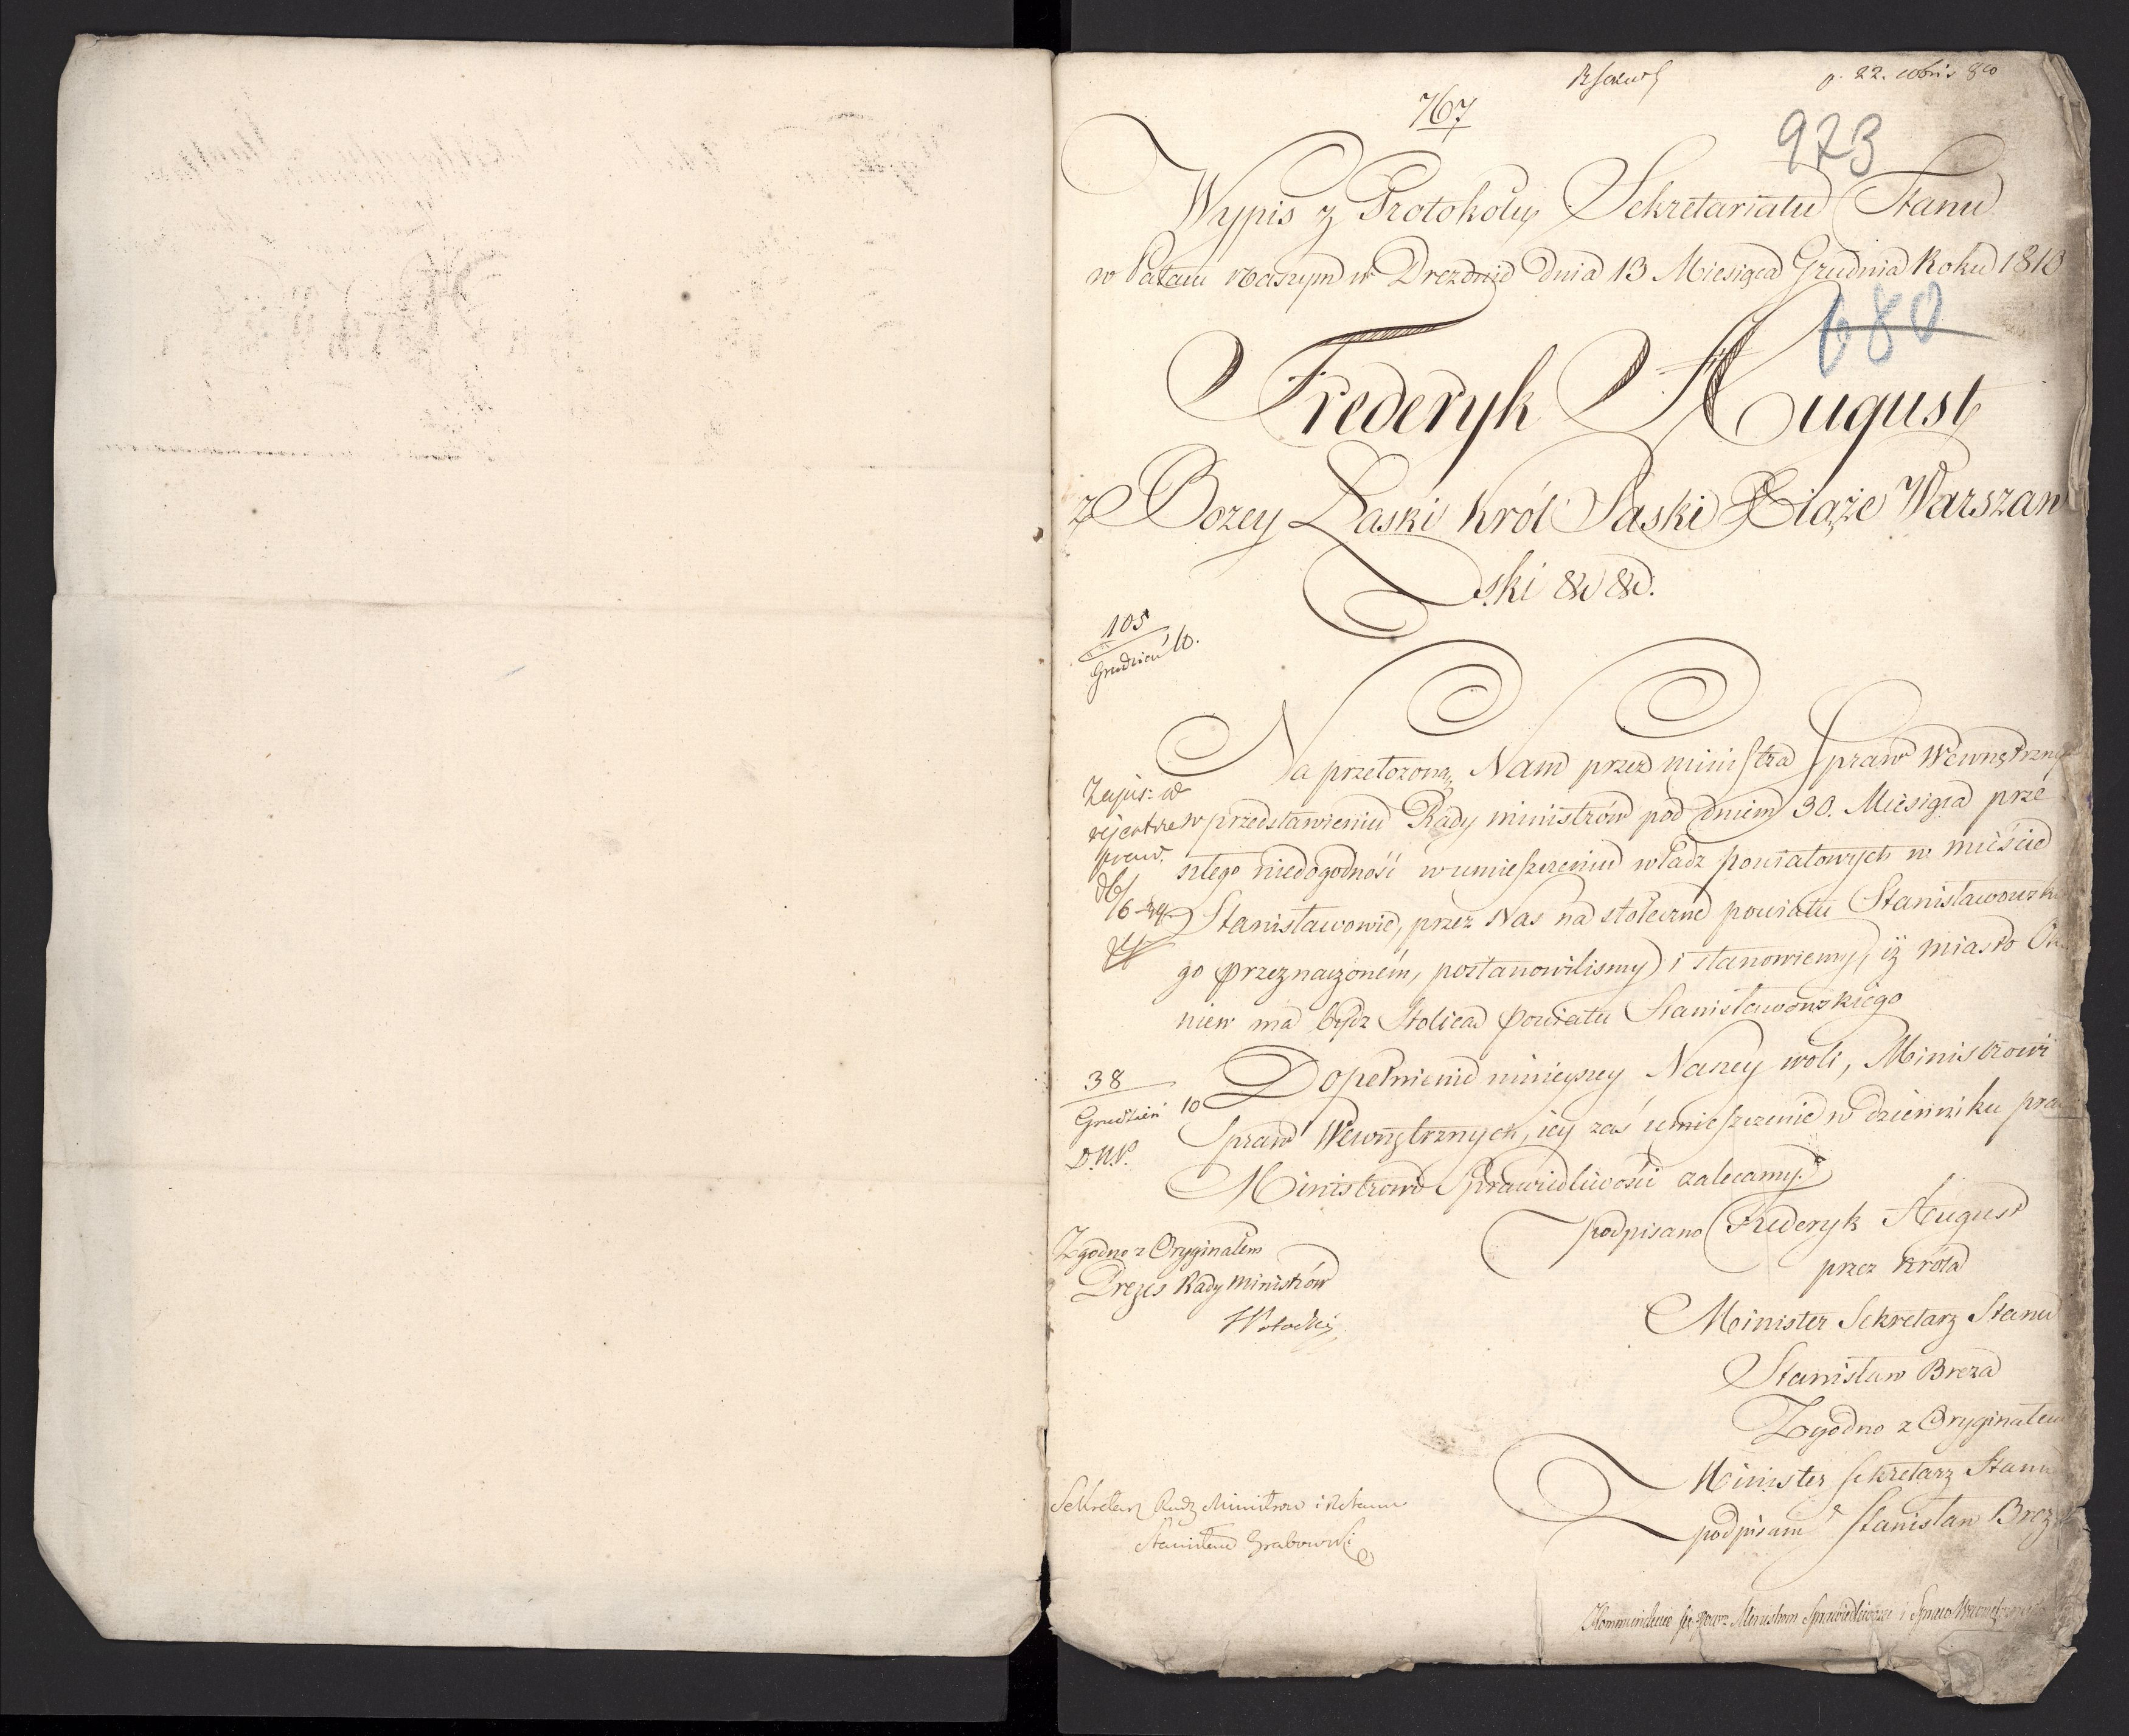 767
p. 22. Xbris 810
973
Wypis z Protokołu Sekretariatu Stanu
w Pałacu Naszym w Dreznie Dnia 13 Miesiąca Grudnia Roku 1810
680
Frederyk August
z Bozey Łaski Król Saski Xiąże Warszaw
ski &c &c.
105
Grudzień 10.
Na przełozoną Nam przez ministra Spraw Wewnętrzny
w przedstawieniu Rady ministrów pod dniem 30. Miesiąca prze
szłego niedogodność w umieszczeniu władz powiatowych w mieście
Stanisławowie, przez Nas na stołeczne powiatu Stanisławowskie
go przeznaczoném, postanowilismy i stanowiemy, iż miasto
niew ma bydz Stolicą Powiatu Stanisławowskiego
Zapis: w
rejestrze
praw.
38
Grudzień 10
D.N.P.
Dopełnienie ninieyszey Naszey woli, Ministrowi
Spraw Wewnętrznych, iey zaś umieszczenie w dzienniku praw
Ministrowi Sprawiedliwości zalecamy.
podpisano Frederyk August
przez Króla
Minister Sekretarz Stanu
Stanisław Breza
Zgodno z Oryginałem
Minister Sekretarz Stanu
podpisano Stanisław Breza
Zgodno z Oryginałem
Prezes Rady Ministrów
Sekretarz Rady Ministrow i Stanu
Stanisław Grabowski
Kommunikuie się JJWW. Ministrom Sprawiedliwości i Spraw Wewnętrznych